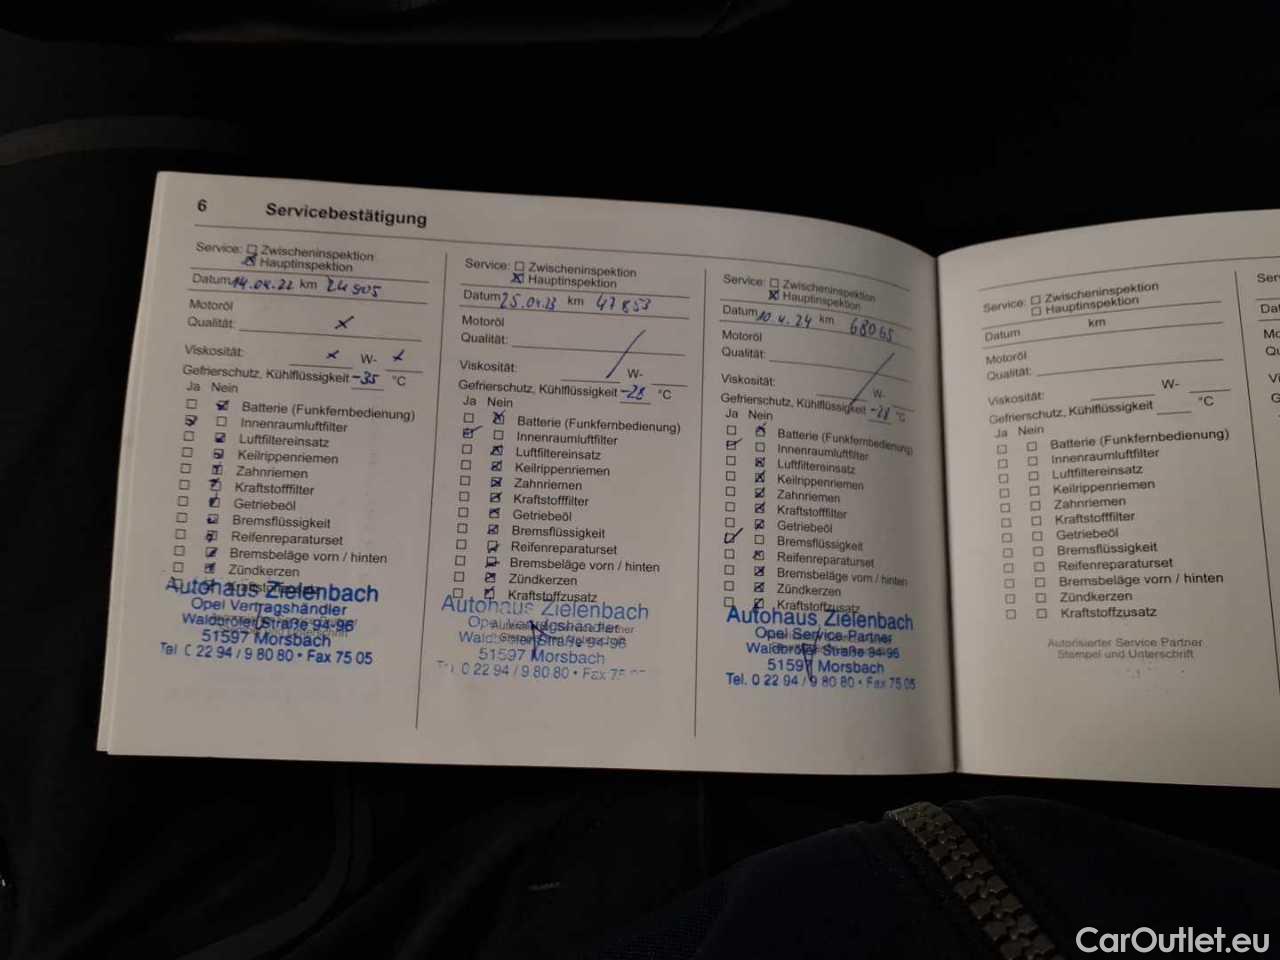 6 Servicebestätigung
Service: Zwischeninspektion
Hauptinspektion
Datum 14.04.22 km 24905
Motoröl
Qualität:
Viskosität: W-
Gefrierschutz, Kühlflüssigkeit -35 °C
Ja Nein
Batterie (Funkfernbedienung)
Innenraumluftfilter
Luftfiltereinsatz
Keilrippenriemen
Zahnriemen
Kraftstofffilter
Getriebeöl
Bremsflüssigkeit
Reifenreparaturset
Bremsbeläge vorn / hinten
Zündkerzen
Autohaus Zielenbach
Opel Vertragshändler
Waldbröler Straße 94-96
51597 Morsbach
Tel. 0 22 94 / 9 80 80 • Fax 75 05
Service: Zwischeninspektion
Hauptinspektion
Datum 25.04.23 km 47853
Motoröl
Qualität:
Viskosität: W-
Gefrierschutz, Kühlflüssigkeit -28 °C
Ja Nein
Batterie (Funkfernbedienung)
Innenraumluftfilter
Luftfiltereinsatz
Keilrippenriemen
Zahnriemen
Kraftstofffilter
Getriebeöl
Bremsflüssigkeit
Reifenreparaturset
Bremsbeläge vorn / hinten
Zündkerzen
Kraftstoffzusatz
Autohaus Zielenbach
Opel Vertragshändler
Waldbröler Straße 94-96
51597 Morsbach
Tel. 0 22 94 / 9 80 80 • Fax
Service: Zwischeninspektion
Hauptinspektion
Datum 10.4.24 km 68065
Motoröl
Qualität:
Viskosität: W-
Gefrierschutz, Kühlflüssigkeit -28 °C
Ja Nein
Batterie (Funkfernbedienung)
Innenraumluftfilter
Luftfiltereinsatz
Keilrippenriemen
Zahnriemen
Kraftstofffilter
Getriebeöl
Bremsflüssigkeit
Reifenreparaturset
Bremsbeläge vorn / hinten
Zündkerzen
Kraftstoffzusatz
Autohaus Zielenbach
Opel Service Partner
Waldbröler Straße 94-96
51597 Morsbach
Tel. 0 22 94 / 9 80 80 • Fax 75 05
Service: Zwischeninspektion
Hauptinspektion
Datum km
Motoröl
Qualität:
Viskosität: W-
Gefrierschutz, Kühlflüssigkeit °C
Ja Nein
Batterie (Funkfernbedienung)
Innenraumluftfilter
Luftfiltereinsatz
Keilrippenriemen
Zahnriemen
Kraftstofffilter
Getriebeöl
Bremsflüssigkeit
Reifenreparaturset
Bremsbeläge vorn / hinten
Zündkerzen
Kraftstoffzusatz
Autorisierter Service Partner
Stempel und Unterschrift
CarOutlet.eu